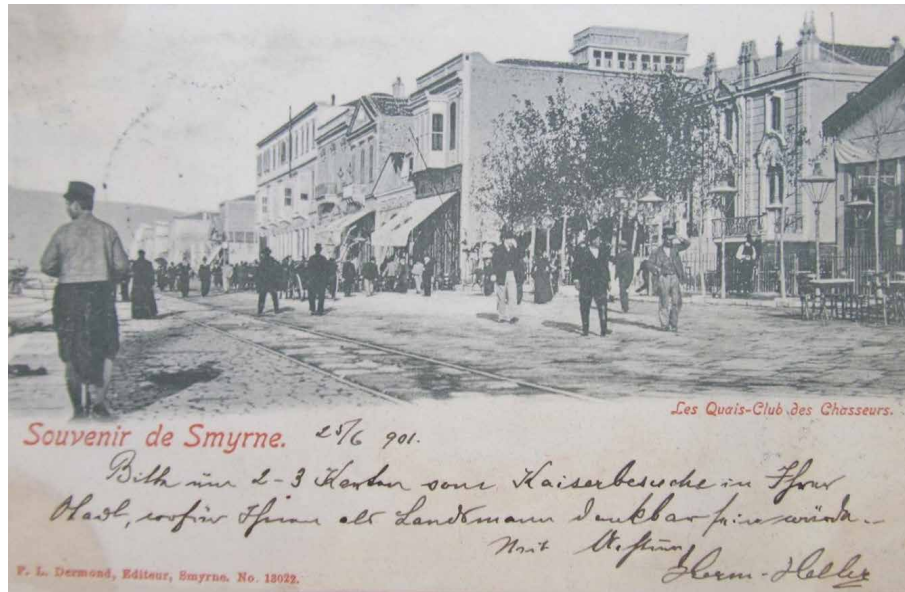 Les Quais-Club des Chasseurs.
Souvenir de Smyrne. 25/6 901.
Bitte um 2-3 Karten vom Kaiserbesuche in Ihrer
Stadt, wofür Ihnen als Landsmann dankbar sein würde.
Mit Achtung
Herm. Heller
F. L. Dermond, Editeur, Smyrne. No. 13022.